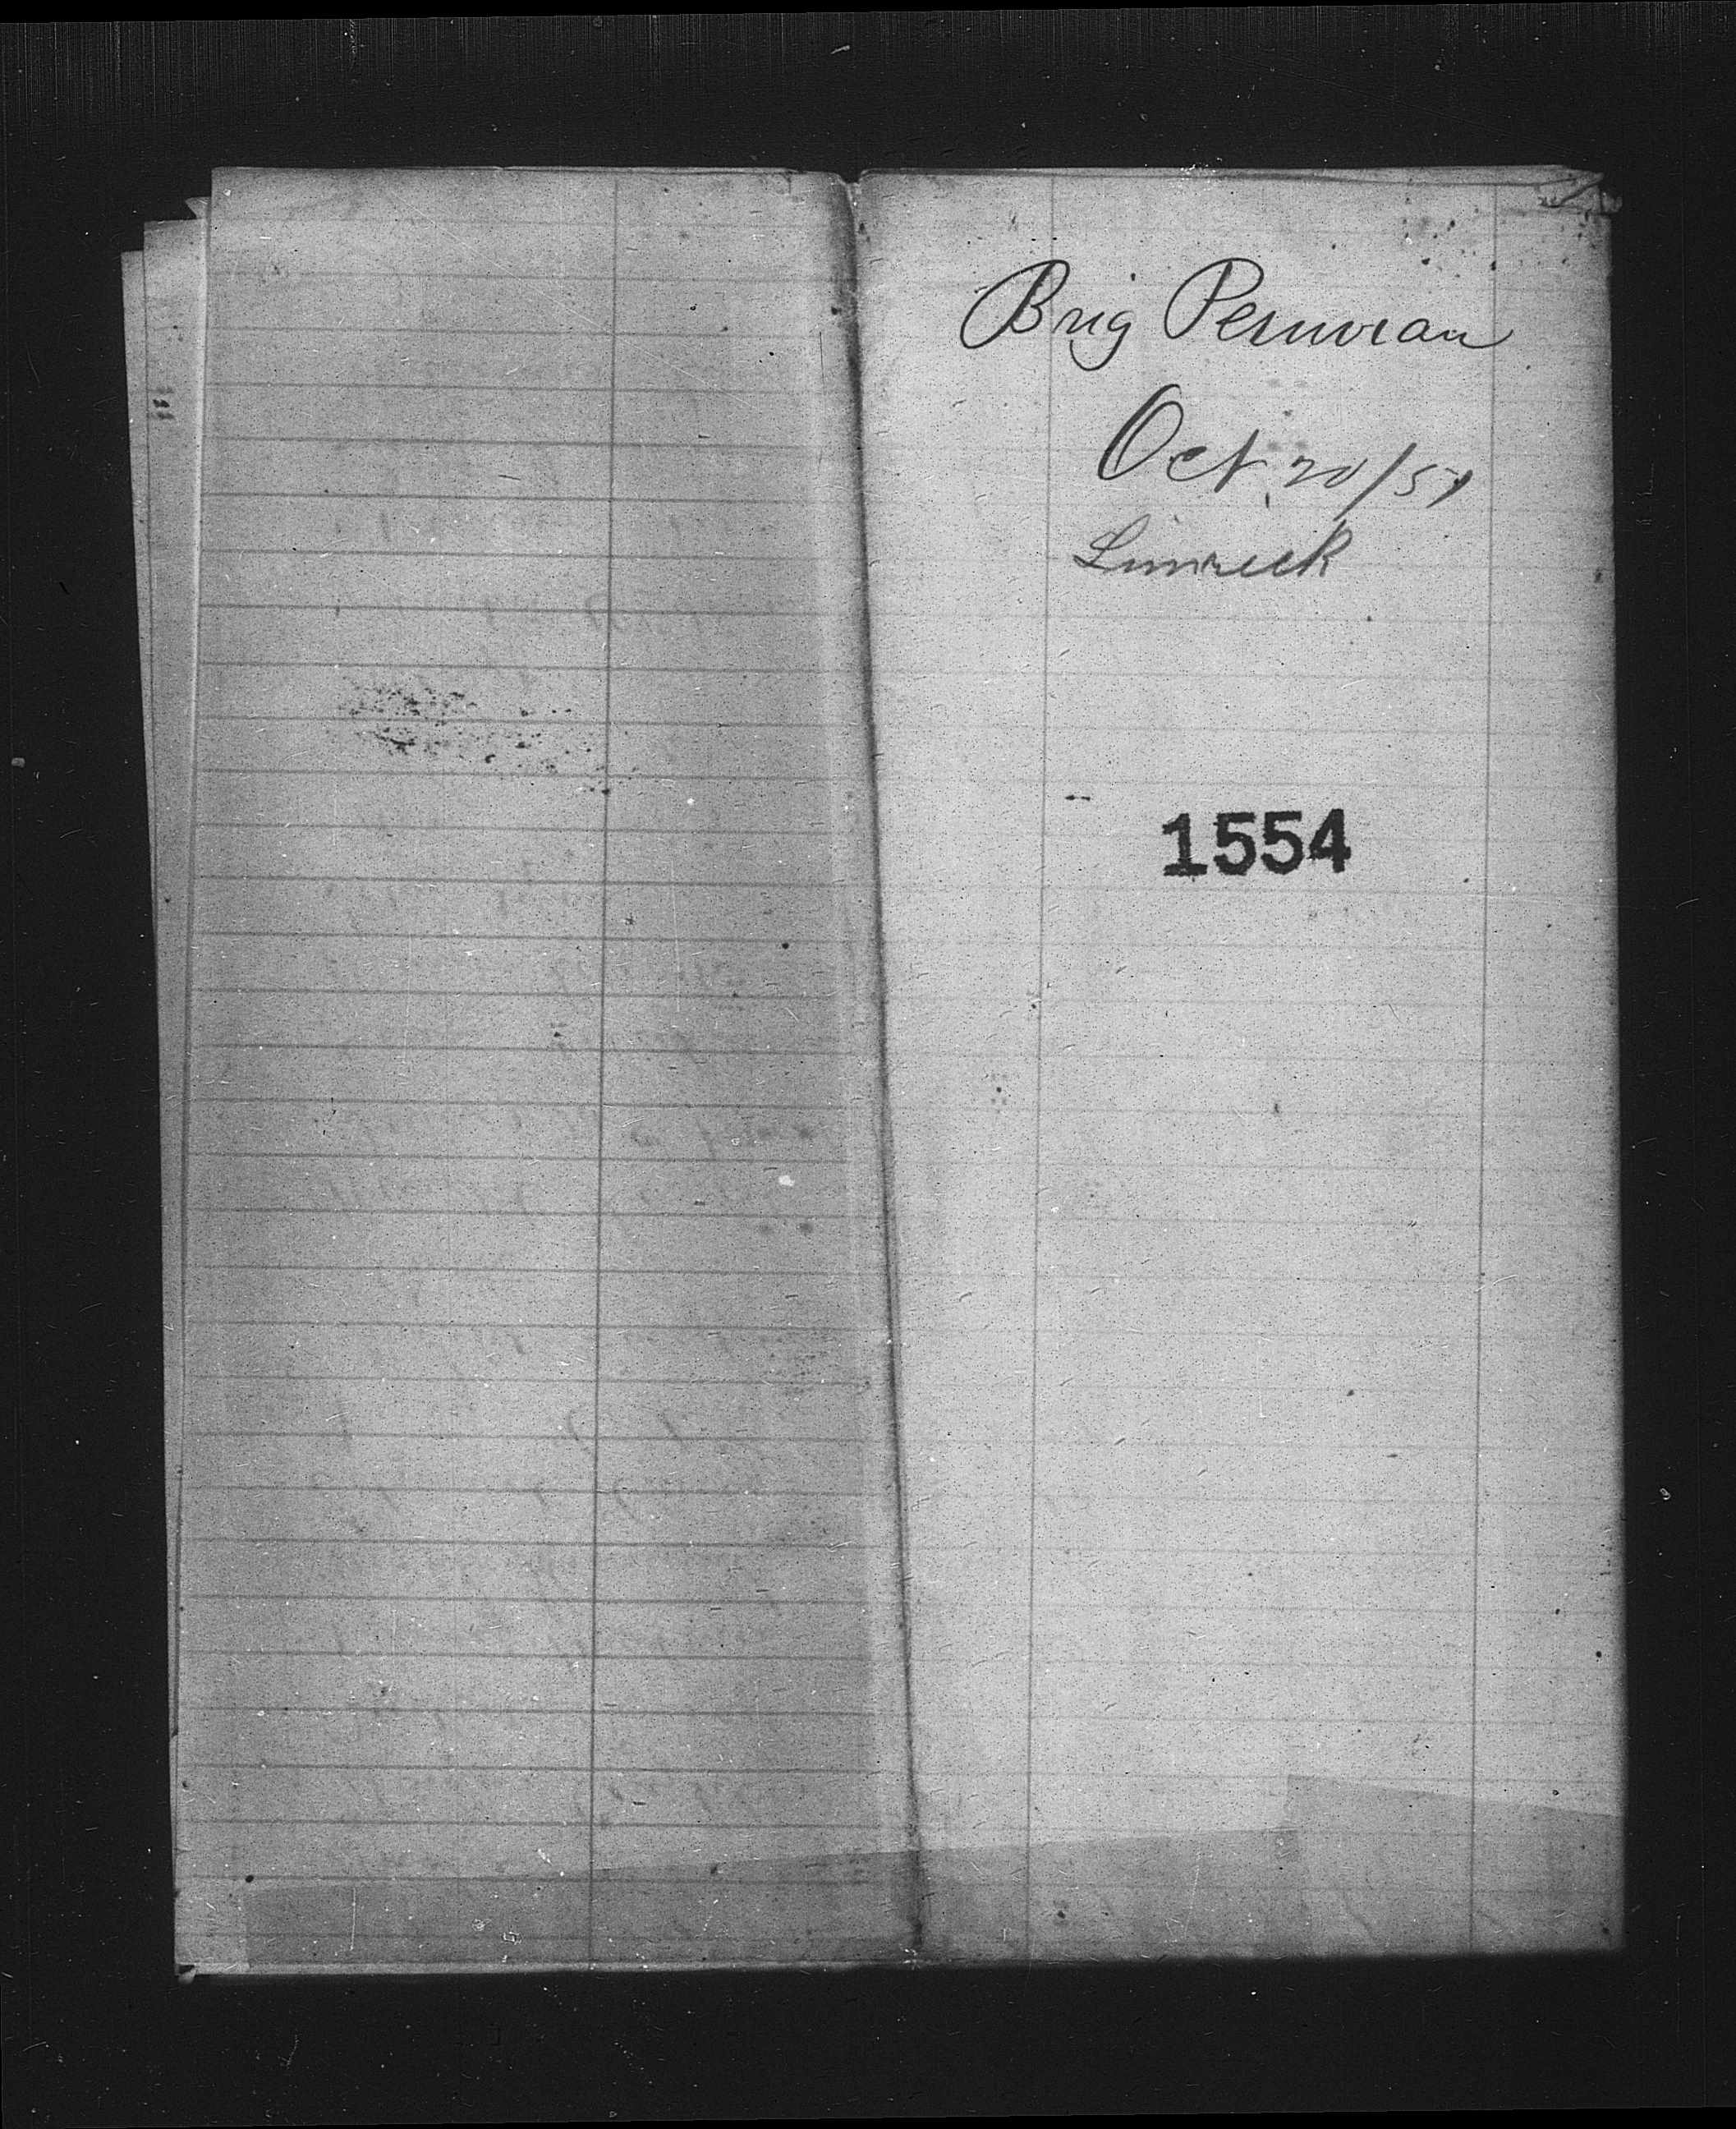 Brig Peruvian
Oct 20/51
Limrick
1554